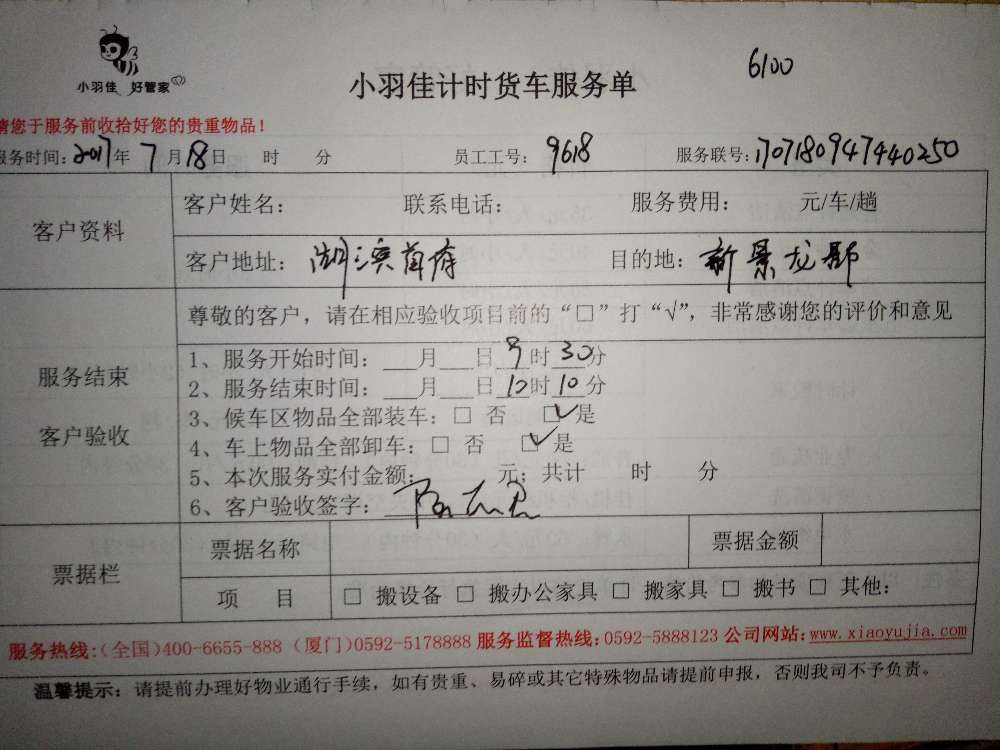 小羽佳 好管家
小羽佳计时货车服务单
6100
请您于服务前收拾好您的贵重物品！
服务时间：2017年7月18日 时 分 员工工号：9618 服务联号：1707180947440250
客户资料
客户姓名： 联系电话： 服务费用： 元/车/趟
客户地址：湖滨首府 目的地：新景龙郡
服务结束
客户验收
尊敬的客户，请在相应验收项目前的“□”打“√”，非常感谢您的评价和意见
1、服务开始时间：___月___日 9时30分
2、服务结束时间：___月___日12时10分
3、候车区物品全部装车：□ 否 ☑是
4、车上物品全部卸车：□ 否 ☑是
5、本次服务实付金额： 元；共计 时 分
6、客户验收签字：
票据栏
票据名称 票据金额
项 目 □ 搬设备 □ 搬办公家具 □ 搬家具 □ 搬书 □ 其他：
服务热线：(全国)400-6655-888 (厦门)0592-5178888 服务监督热线：0592-5888123 公司网站：www.xiaoyujia.com
温馨提示：请提前办理好物业通行手续，如有贵重、易碎或其它特殊物品请提前申报，否则我司不予负责。